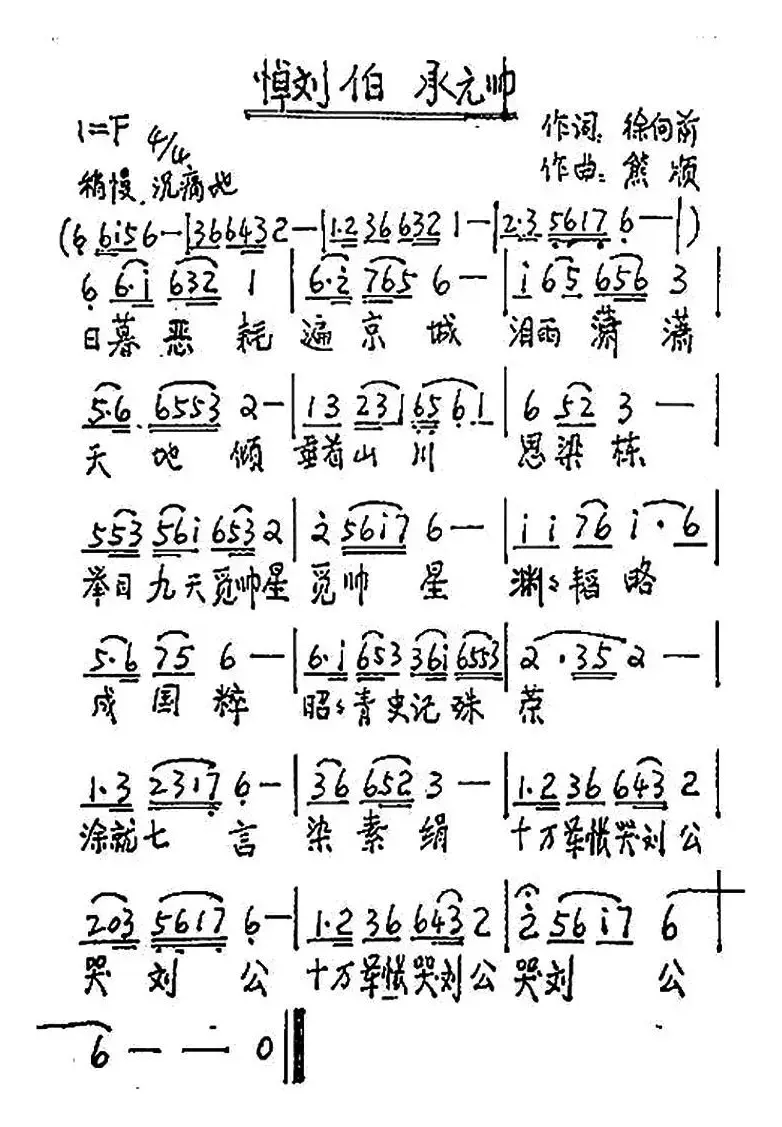 悼刘伯承元帅
1=F 4/4
稍慢、沉痛地
作词：徐向前
作曲：熊颂
(6 6i56-|366432-|1·2366321-|2·356176--|)
6 6·i 632 1|6·2 765 6-|i65 656 3|
日暮恶耗遍京城 泪雨萧萧
5·6 6553 2-|13 231 6561|6 52 3-|
天地倾 垂首山川 思梁栋
553 56i 6532|2 56i7 6-|ii 76 i·6|
举目九天觅帅星觅帅星 渊渊韬略
5·6 75 6-|6·i 653 36i 6553|2·352-|
成国粹 昭昭青史记殊荣
1·3 2317 6-|36 652 3-|1·2 36 643 2|
涂就七言染素绢 十万军帐哭刘公
203 5617 6-|1·2 36 643 2|2 56i7 6|
哭刘公 十万军帐哭刘公哭刘公
6--0